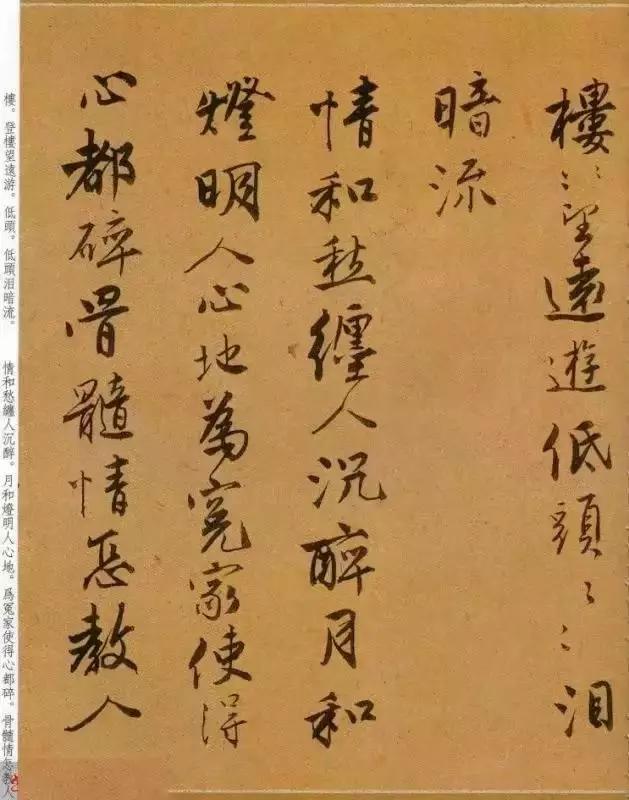 樓〻望遠遊低頭〻〻泪
暗流
情和愁纏人沉醉月和
燈明人心地為寃家使得
心都碎骨髓情怎教人
樓。登樓望遠游。低頭。低頭泪暗流。　情和愁纏人沉醉。月和燈明人心地。爲冤家使得心都碎。骨髓情怎教人